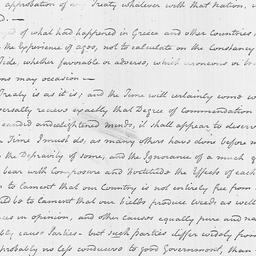 approbation of any Treaty whatever with that Nation,
D.—
of what had happened in Greece and other Countries
the Experience of ages, not to calculate on the Constancy
Tide, whether favorable or adverse, which
may occasion—
Treaty is as it is; and the Time will certainly come
receive exactly that Degree of Commendation
candid and enlightened minds, it shall appear to deserve
Time I must do, as many others have done before
the Depravity of some, and the Ignorance of a much
bear with Composure and Fortitude the Effects of each
to lament that our Country is not entirely free from
to Lament that our fields produce weeds as well
in opinion, and other causes equally pure and
cause Parties— but such parties differ widely from
probably no less conducive to good Government, than